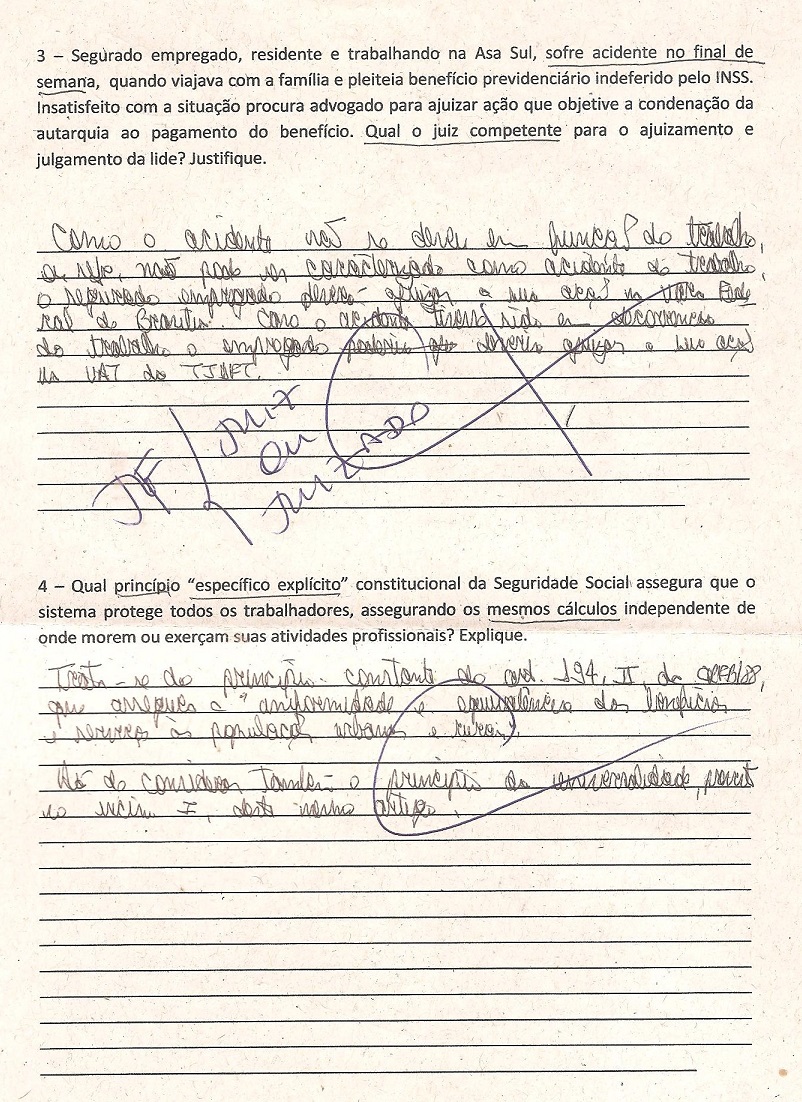 3 – Segurado empregado, residente e trabalhando na Asa Sul, sofre acidente no final de
semana, quando viajava com a família e pleiteia benefício previdenciário indeferido pelo INSS.
Insatisfeito com a situação procura advogado para ajuizar ação que objetive a condenação da
autarquia ao pagamento do benefício. Qual o juiz competente para o ajuizamento e
julgamento da lide? Justifique.
Como o acidente não se deveu em função do trabalho,
não pode ser caracterizado como acidente do trabalho,
o segurado empregado deverá ajuizar a sua ação na Vara Fede
ral de Brasília. Caso o acidente tivesse sido em decorrência
do trabalho o empregado deveria ajuizar a sua ação
na VAT do TJDFT.
JF
JUIZ
OU
JUIZADO
4 – Qual princípio “específico explícito” constitucional da Seguridade Social assegura que o
sistema protege todos os trabalhadores, assegurando os mesmos cálculos independente de
onde morem ou exerçam suas atividades profissionais? Explique.
Trata-se do princípio constante do art. 194, II, da CRFB/88,
que assegura a "uniformidade e equivalência dos benefícios
e serviços às populações urbanas e rurais).
Há de considerar também o princípio da universalidade, previsto
no inciso I, deste mesmo artigo.